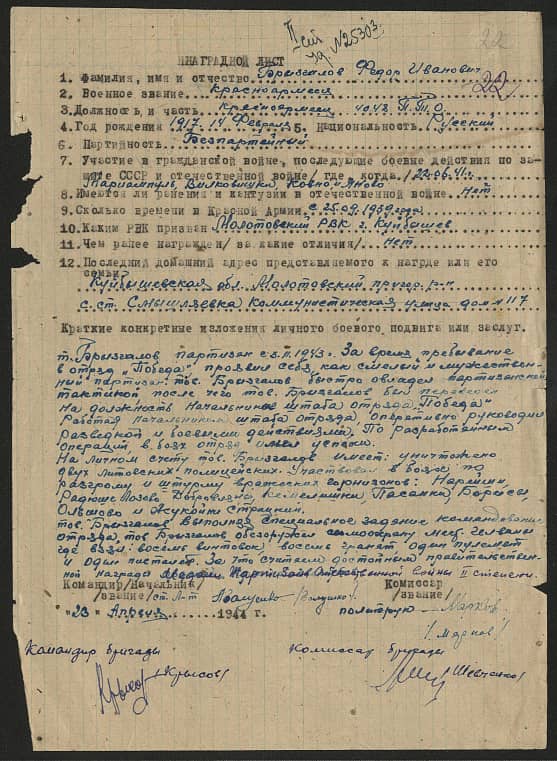 II сит
уд. №25303
22
ННАГРАДНОЙ ЛИСТ
22
1. Фамилия, имя и отчество Брызгалов Федор Иванович
2. Военное звание красноармеец
3. Должность, и часть красноармеец 4042 П.П.О.
4. Год рождения 1917. 14 Февраля 5. Национальность Русский
6. Партийность Безпартейный
7. Участие в гражданской войне, последующие боевые действия по за-
щите СССР и отечественной войне/ где, когда./ 22.06.41г.
Мариамполь, Вилковишки, Ковно и Яново
8. Имеются ли ранения и кантузии в отечественной войне Нет
9. Сколько времени в Красной Армии, с 25.09.1939 года
10. Каким РВК призван Молотовский РВК г. Куйбышев
11. Чем ранее награжден/ за какие отличия/. Нет.
12. Последний домашний адрес представляемого к нагрде или его
семьи.
Куйбышевская обл. Молотовский пригор. р-н
с. ст. Смышляевка Коммунистическая улица дом № 117
Краткие конкретные изложения личного боевого подвига или заслуг.
т. Брызгалов партизан с 3.II.1943г. За время пребывание
в отряд "Победа", проявил себя, как смелый и мужествен-
ный партизан. тов. Брызгалов быстро овладел партизанской
тактикой после чего тов. Брызгалов был переведен
На должность Начальника штаба отряда "Победа"
Работая начальником штаба отряда, оперативно руководил
разведкой и боевыми действиями. По разработанным
операций в боях отряд имел успехи.
На личном счету тов. Брызгалов имеет: уничтожено
двух литовских полицейских. Участвовал в боях по
разгрому и штурму вражеских гарнизонов:
тов. Брызгалов выполняя специальное задание командования
отряда, тов Брызгалов обезоружил самоохрану мест.
где взял: восемь винтовок, восемь гранат один пулемет
и один пистолет. За что считаем достойным правительствен-
ной награды Отечественной войны II степени.
Командир/Начальник/ Комиссар
/звание/ ст. л-т /звание/
политрук Марков
"23" Апреля 1944 г.
/Марков/
Командир бригады Комиссар бригады
/Крысов/ /Шевченко/